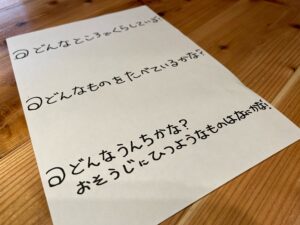 @どんなところでくらしているかな?
@どんなものをたべているかな?
@どんなうんちかな?
おそうじにひつようなものはなにかな?